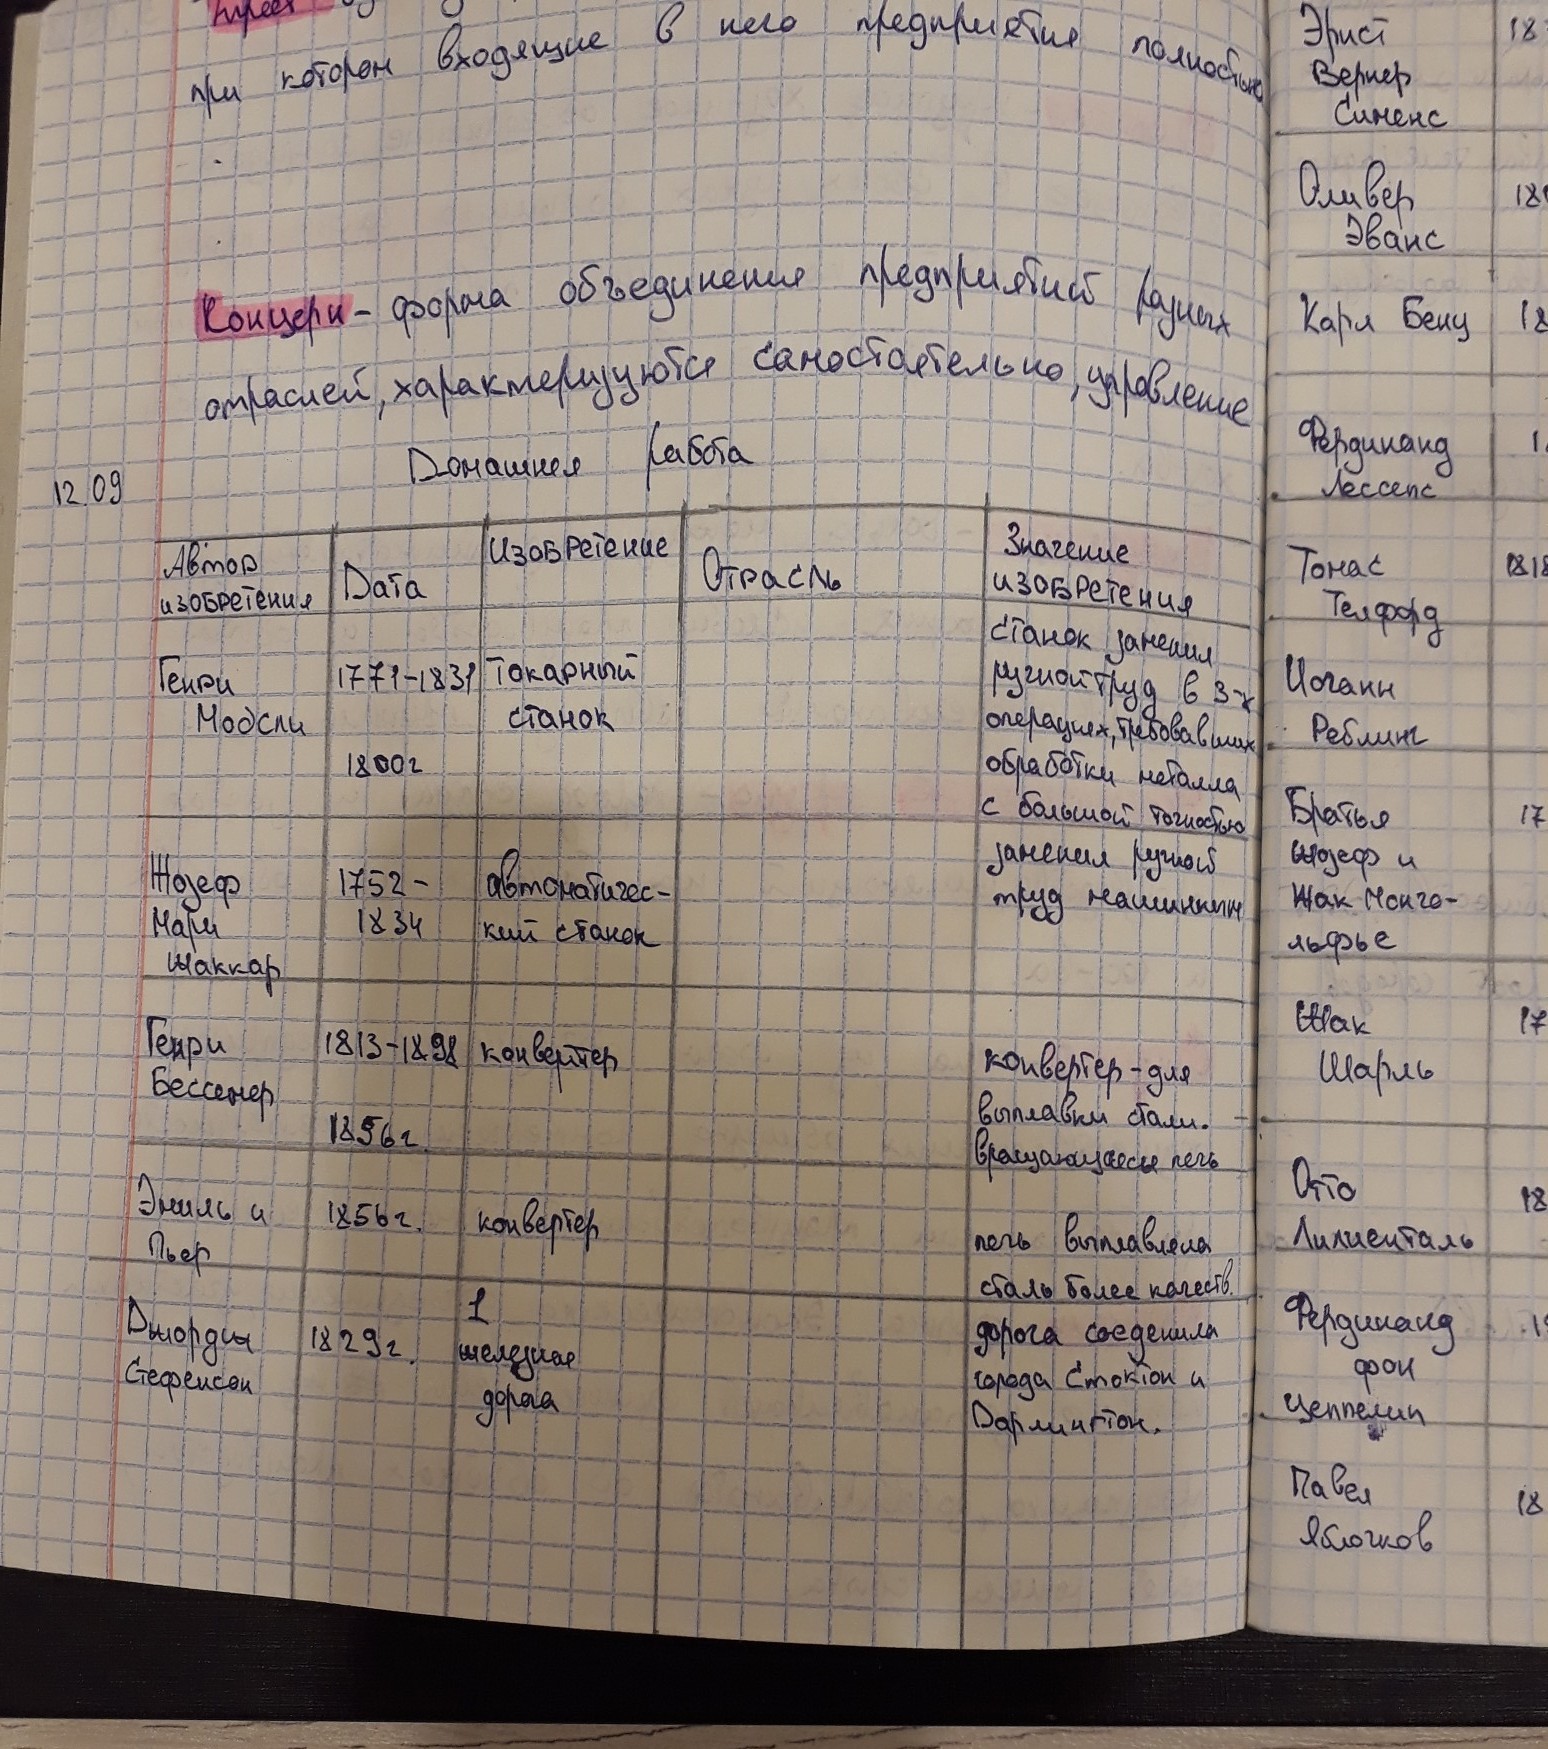 при котором входящие в него предприятия полностью
Концерн - форма объединения предприятий разных
отраслей, характеризуются самостоятельно, управление
12.09
Домашняя работа
Автор
изобретения
Дата
Изобретение
Отрасль
Значение
изобретения
Генри
Модсли
1771-1831
1800г
токарный
станок
станок заменил
ручной труд в 3-х
операциях, требовавших
обработки металла
с большой точностью
Жозеф
Мари
Жаккар
1752-
1834
автоматичес-
кий станок
заменил ручной
труд машинным
Генри
Бессемер
1813-1898
1856г.
конвертер
конвертер - для
выплавки стали.
вращающаяся печь
Эмиль и
Пьер
1856г.
конвертер
печь выплавляла
сталь более качеств.
Джордж
Стефенсон
1829г.
1
железная
дорога
дорога соеденила
города Стоктон и
Дарлингтон.
Эрнст
Вернер
Сименс
18
Оливер
Эванс
18
Карл Бенц
18
Фердинанд
Лессепс
1
Томас
Телфорд
1818
Иоганн
Реблинг
Братья
Жозеф и
Жак Монго-
льфье
17
Жак
Шарль
17
Отто
Лилиенталь
18
Фердинанд
фон
Цеппелин
19
Павел
Яблочков
18